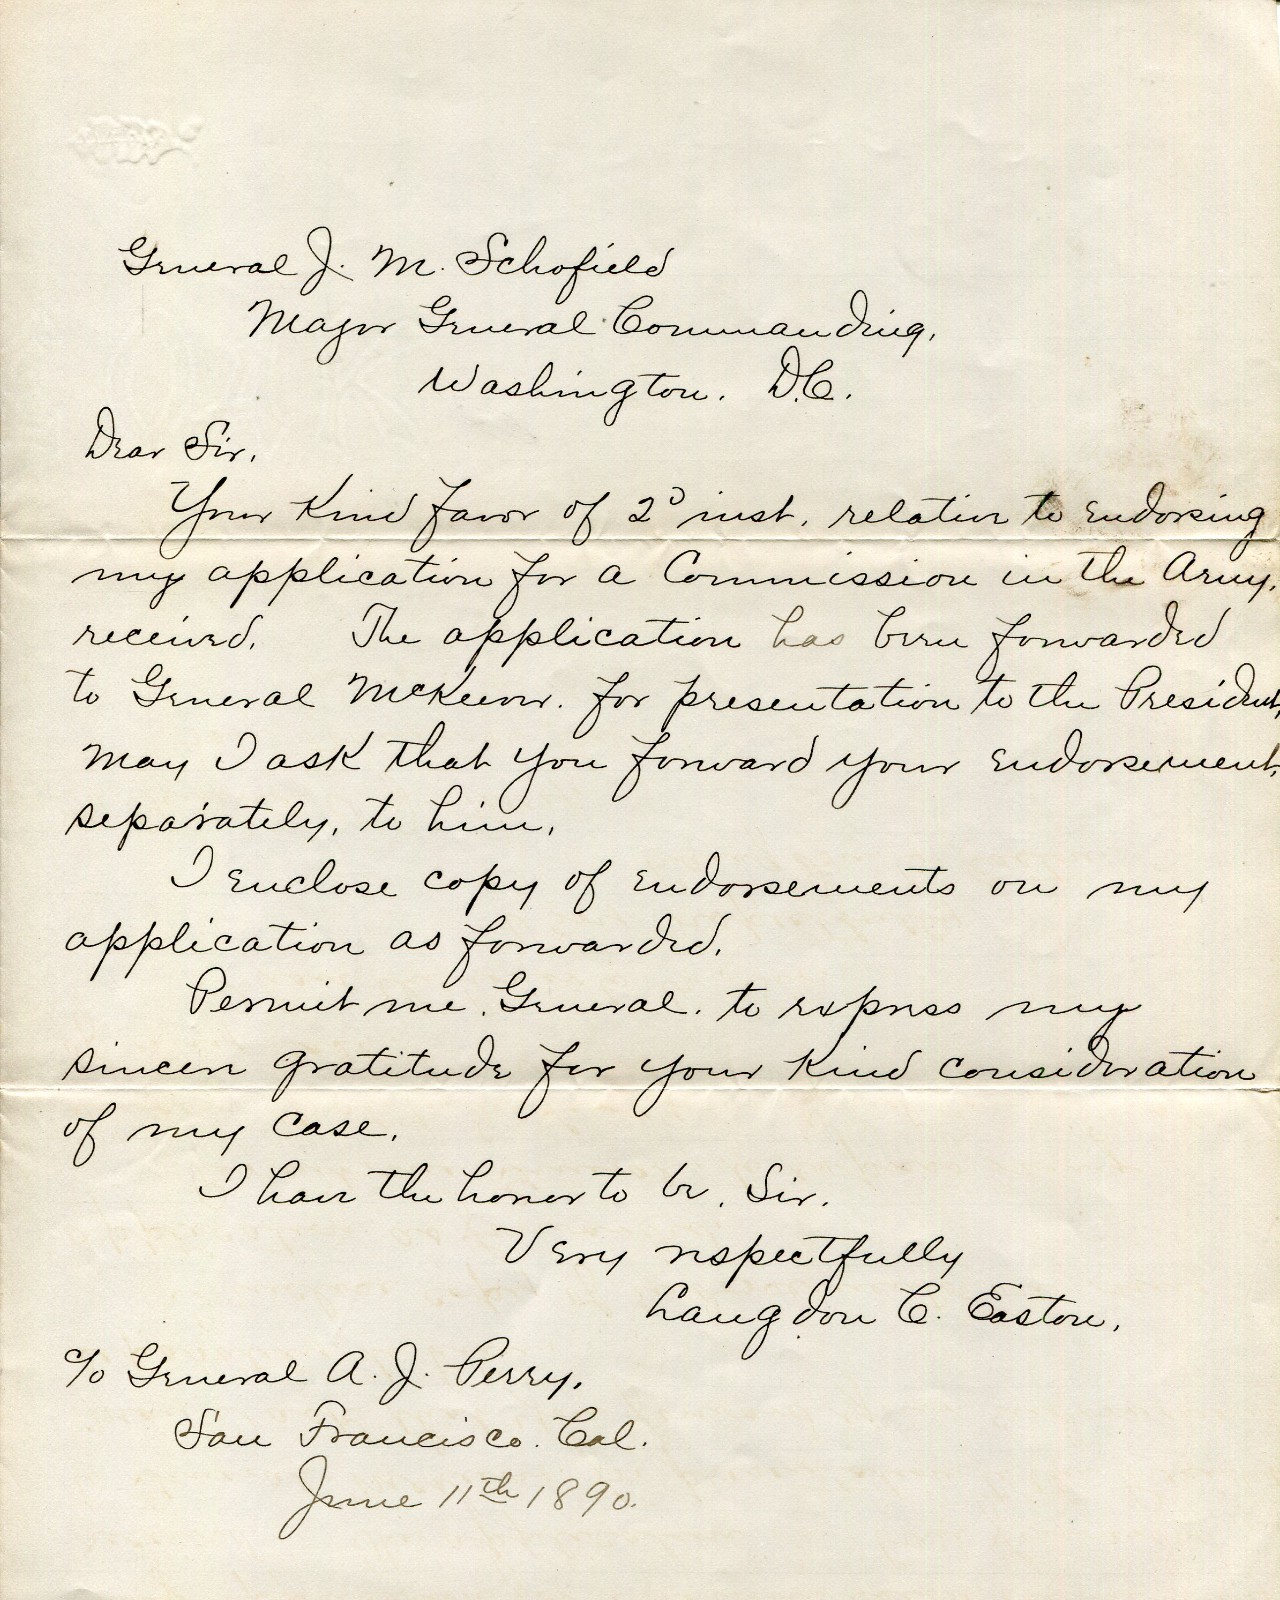 General J. M. Schofield
Major General Commanding,
Washington. D.C.
Dear Sir,
Your kind favor of 2d inst. relative to endorsing
my application for a Commission in the Army,
received. The application has been forwarded
to General McKeever. for presentation to the President,
May I ask that you forward your endorsement,
separately, to him,
I enclose copy of endorsements on my
application as forwarded.
Permit me, General. to express my
sincere gratitude for your kind consideration
of my case.
I have the honor to be, Sir.
Very respectfully
Langdon C. Easton,
c/o General A. J. Perry,
San Francisco. Cal.
June 11th 1890.